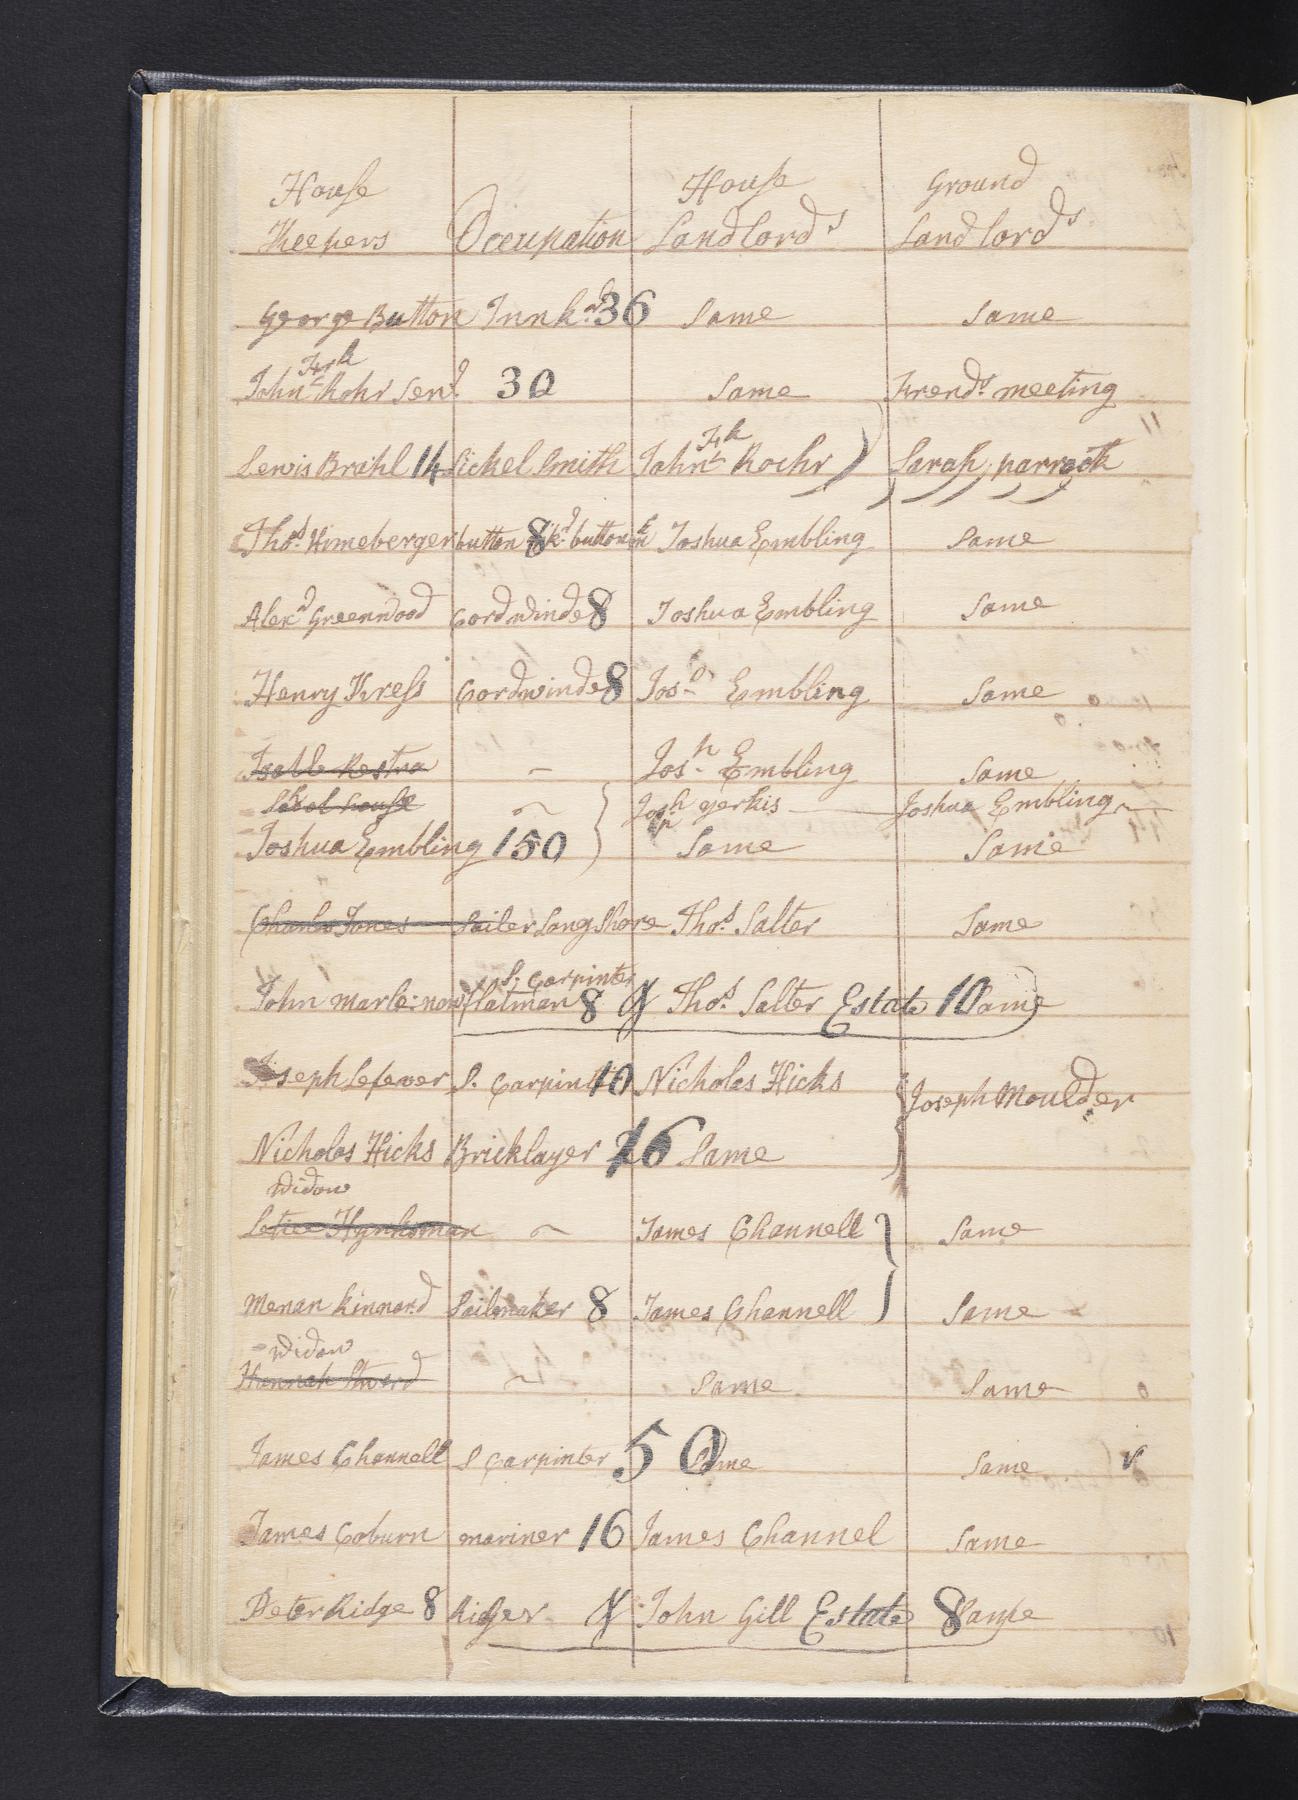 House House Ground
Keepers Occupation Landlords Landlords
George Button Innkr 36 Same Same
Frk
John Rohr Senr 30 Same Frends meeting
Frk
Lewis Brahl 14 Sickel Smith John Roehr Sarah parrock
Thos Himeberger button 8 button Joshua Embling Same
Alexr Greenwood Cordwinde 8 Joshua Embling Same
Henry Kress Cordwinde 8 Josa Embling Same
Restra – Josh Embling Same
Scool house ~ Josh yerkis Joshua Embling
Joshua Embling 150 Same Same
Charles Jones Sailer Long Shore Thos Salter Same
S. Carpinter
John marle now flatman 8 Thos Salter Estate 10 Same
Joseph Lefever S. Carpint 10 Nicholas Hicks Joseph Moulder
Nicholas Hicks Bricklayer 16 Same
Widow
~ James Channell Same
Menan Kinnard Sailmaker 8 James Channell Same
Widow
Hannah ~ Same Same
James Channell S Carpinter 50 Same Same
James Coburn mariner 16 James Channel Same
Peter Ridge 8 Riger John Gill Estate 8 Same